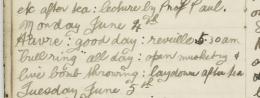 etc after tea: lecture by Prof Paul.
Monday June 4th
Havre: good day: reveille 5.30am
Bull ring all day: open musketry &
live bomb throwing: laydown after tea
Tuesday June 5th